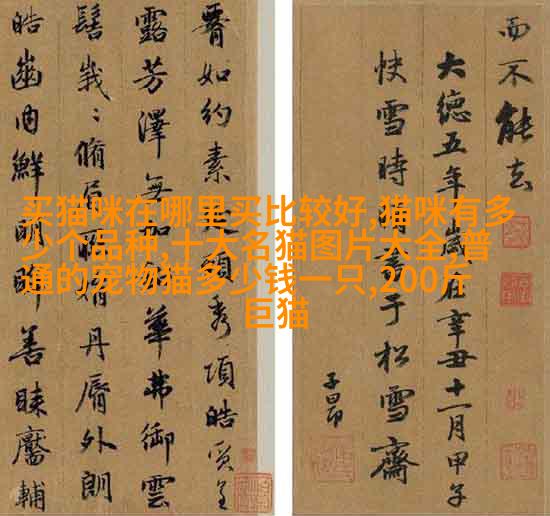 买猫咪在哪里买比较好,猫咪有多
少个品种,十大名猫图片大全,普
通的宠物猫多少钱一只,200斤
巨猫
而不能去
大德五年歲在辛丑十一月甲子
快雪時晴書于松雪齋
子昂
如約素延頸秀項皓質呈
露芳澤無加鉛華弗御雲
髻峩〻脩眉聯娟丹脣外朗
皓齒內鮮明眸善睞靨輔